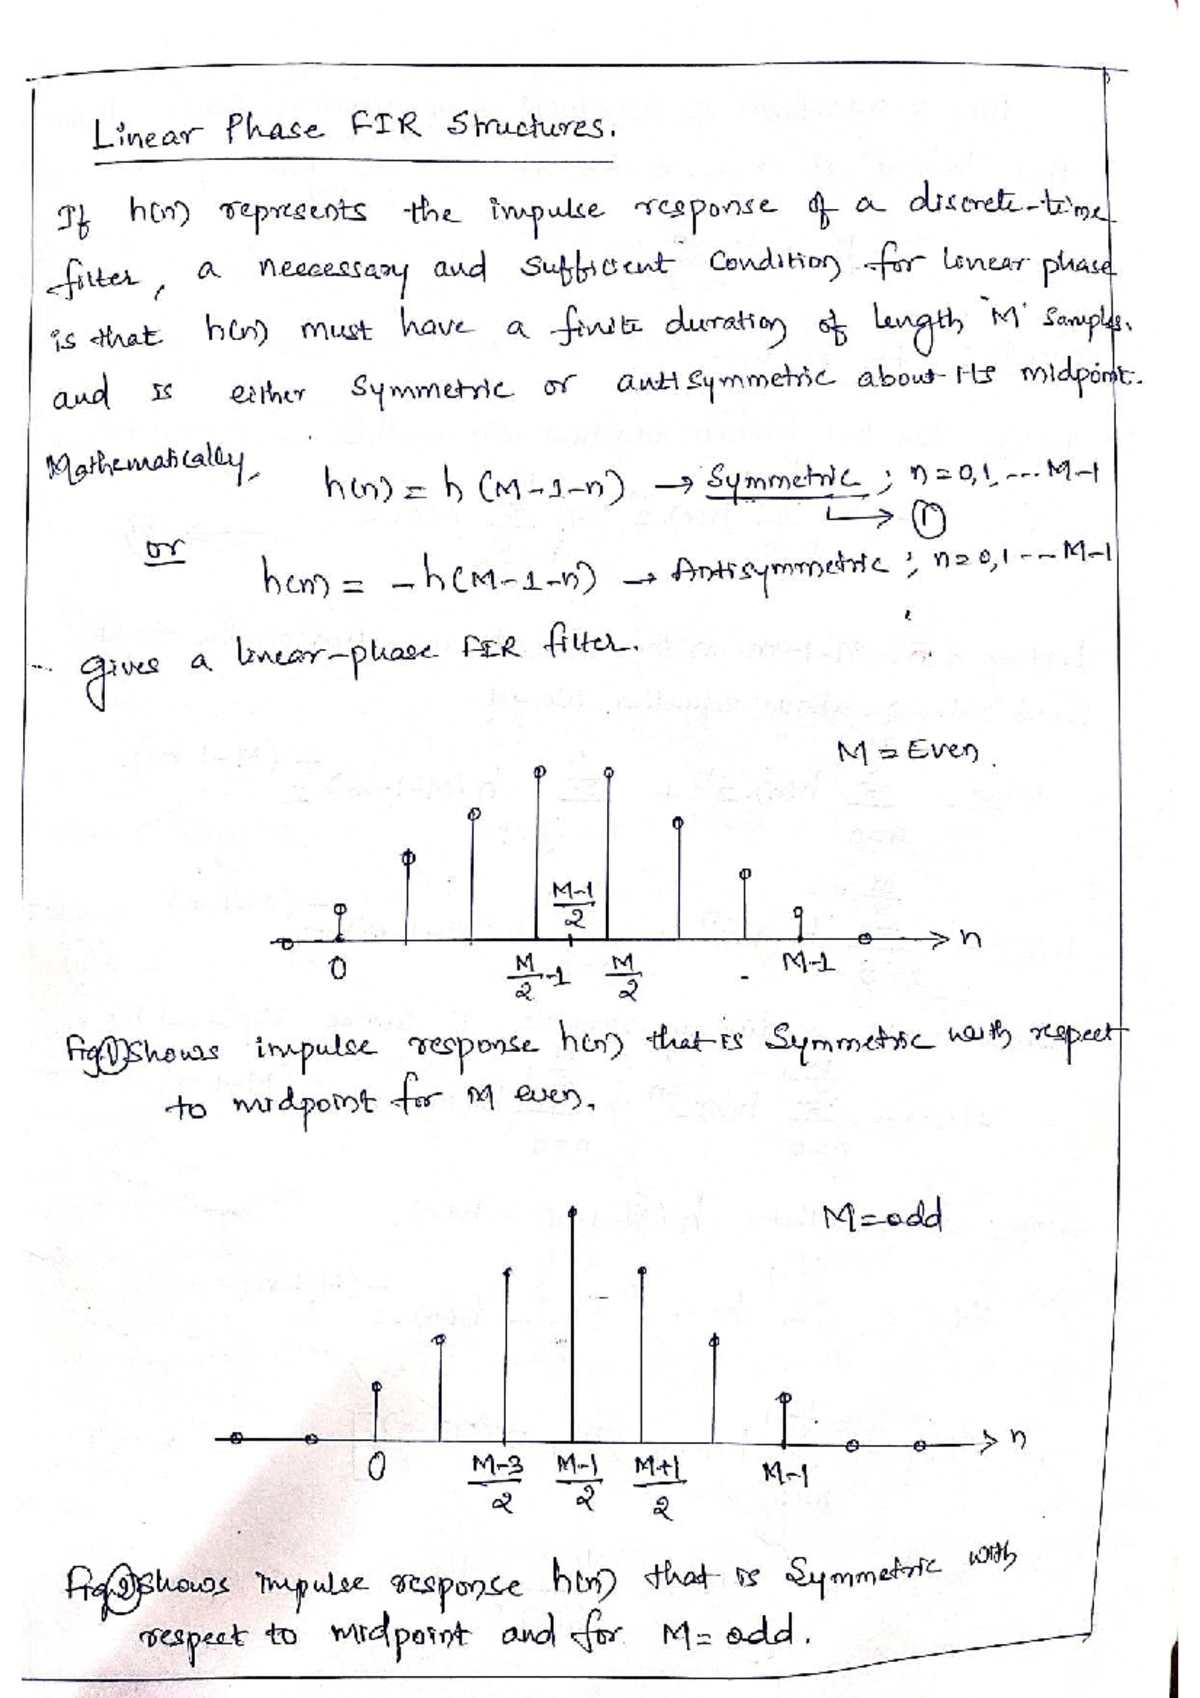 Linear Phase FIR Structures.
If h(n) represents the impulse response of a discrete-time
filter, a neecessary and sufficient condition for linear phase
is that h(n) must have a finite duration of length 'M' samples.
and is either symmetric or antisymmetric about its midpoint.
Mathematically,
h(n) = h(M-1-n) → Symmetric ; n=0,1,...M-1
→ ①
or
h(n) = -h(M-1-n) → Antisymmetric ; n=0,1---M-1
gives a linear-phase FIR filter.
M = Even.
M-1/2
0 M/2-1 M/2 M-1 n
Fig① Shows impulse response h(n) that is Symmetric with respect
to midpoint for M even.
M=odd
0 M-3/2 M-1/2 M+1/2 M-1 n
Fig② Shows impulse response h(n) that is Symmetric with
respect to midpoint and for M=odd.